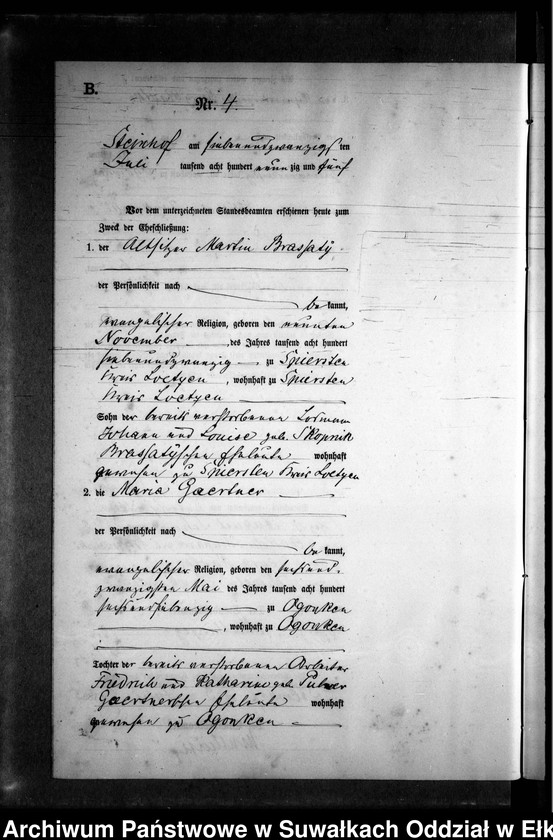 B.
Nr. 4.
Steinhof am siebenundzwanzigs ten
Juli tausend acht hundert neunzig und fünf
Vor dem unterzeichneten Standesbeamten erschienen heute zum
Zweck der Eheschließung:
1. der Altsitzer Martin Brassaty
der Persönlichkeit nach
be kannt,
evangelischer Religion, geboren den neunten
November, des Jahres tausend acht hundert
siebenundzwanzig zu Spiersten
Kreis Loetzen, wohnhaft zu Spiersten
Kreis Loetzen
Sohn der bereits verstorbenen Losmann
Johann und Louise geb. Skopnik
Brassaty'schen Eheleute wohnhaft
gewesen zu Spiersten Kreis Loetzen
2. die Maria Gaertner
der Persönlichkeit nach
be kannt,
evangelischer Religion, geboren den sechsund-
zwanzigsten Mai des Jahres tausend acht hundert
sechsundsiebenzig zu Ogonken
, wohnhaft zu Ogonken
Tochter der bereits verstorbenen Arbeiter
Friedrich und Katharine geb.
Gaertner'schen Eheleute wohnhaft
gewesen zu Ogonken
Archiwum Państwowe w Suwałkach Oddział w Ełk